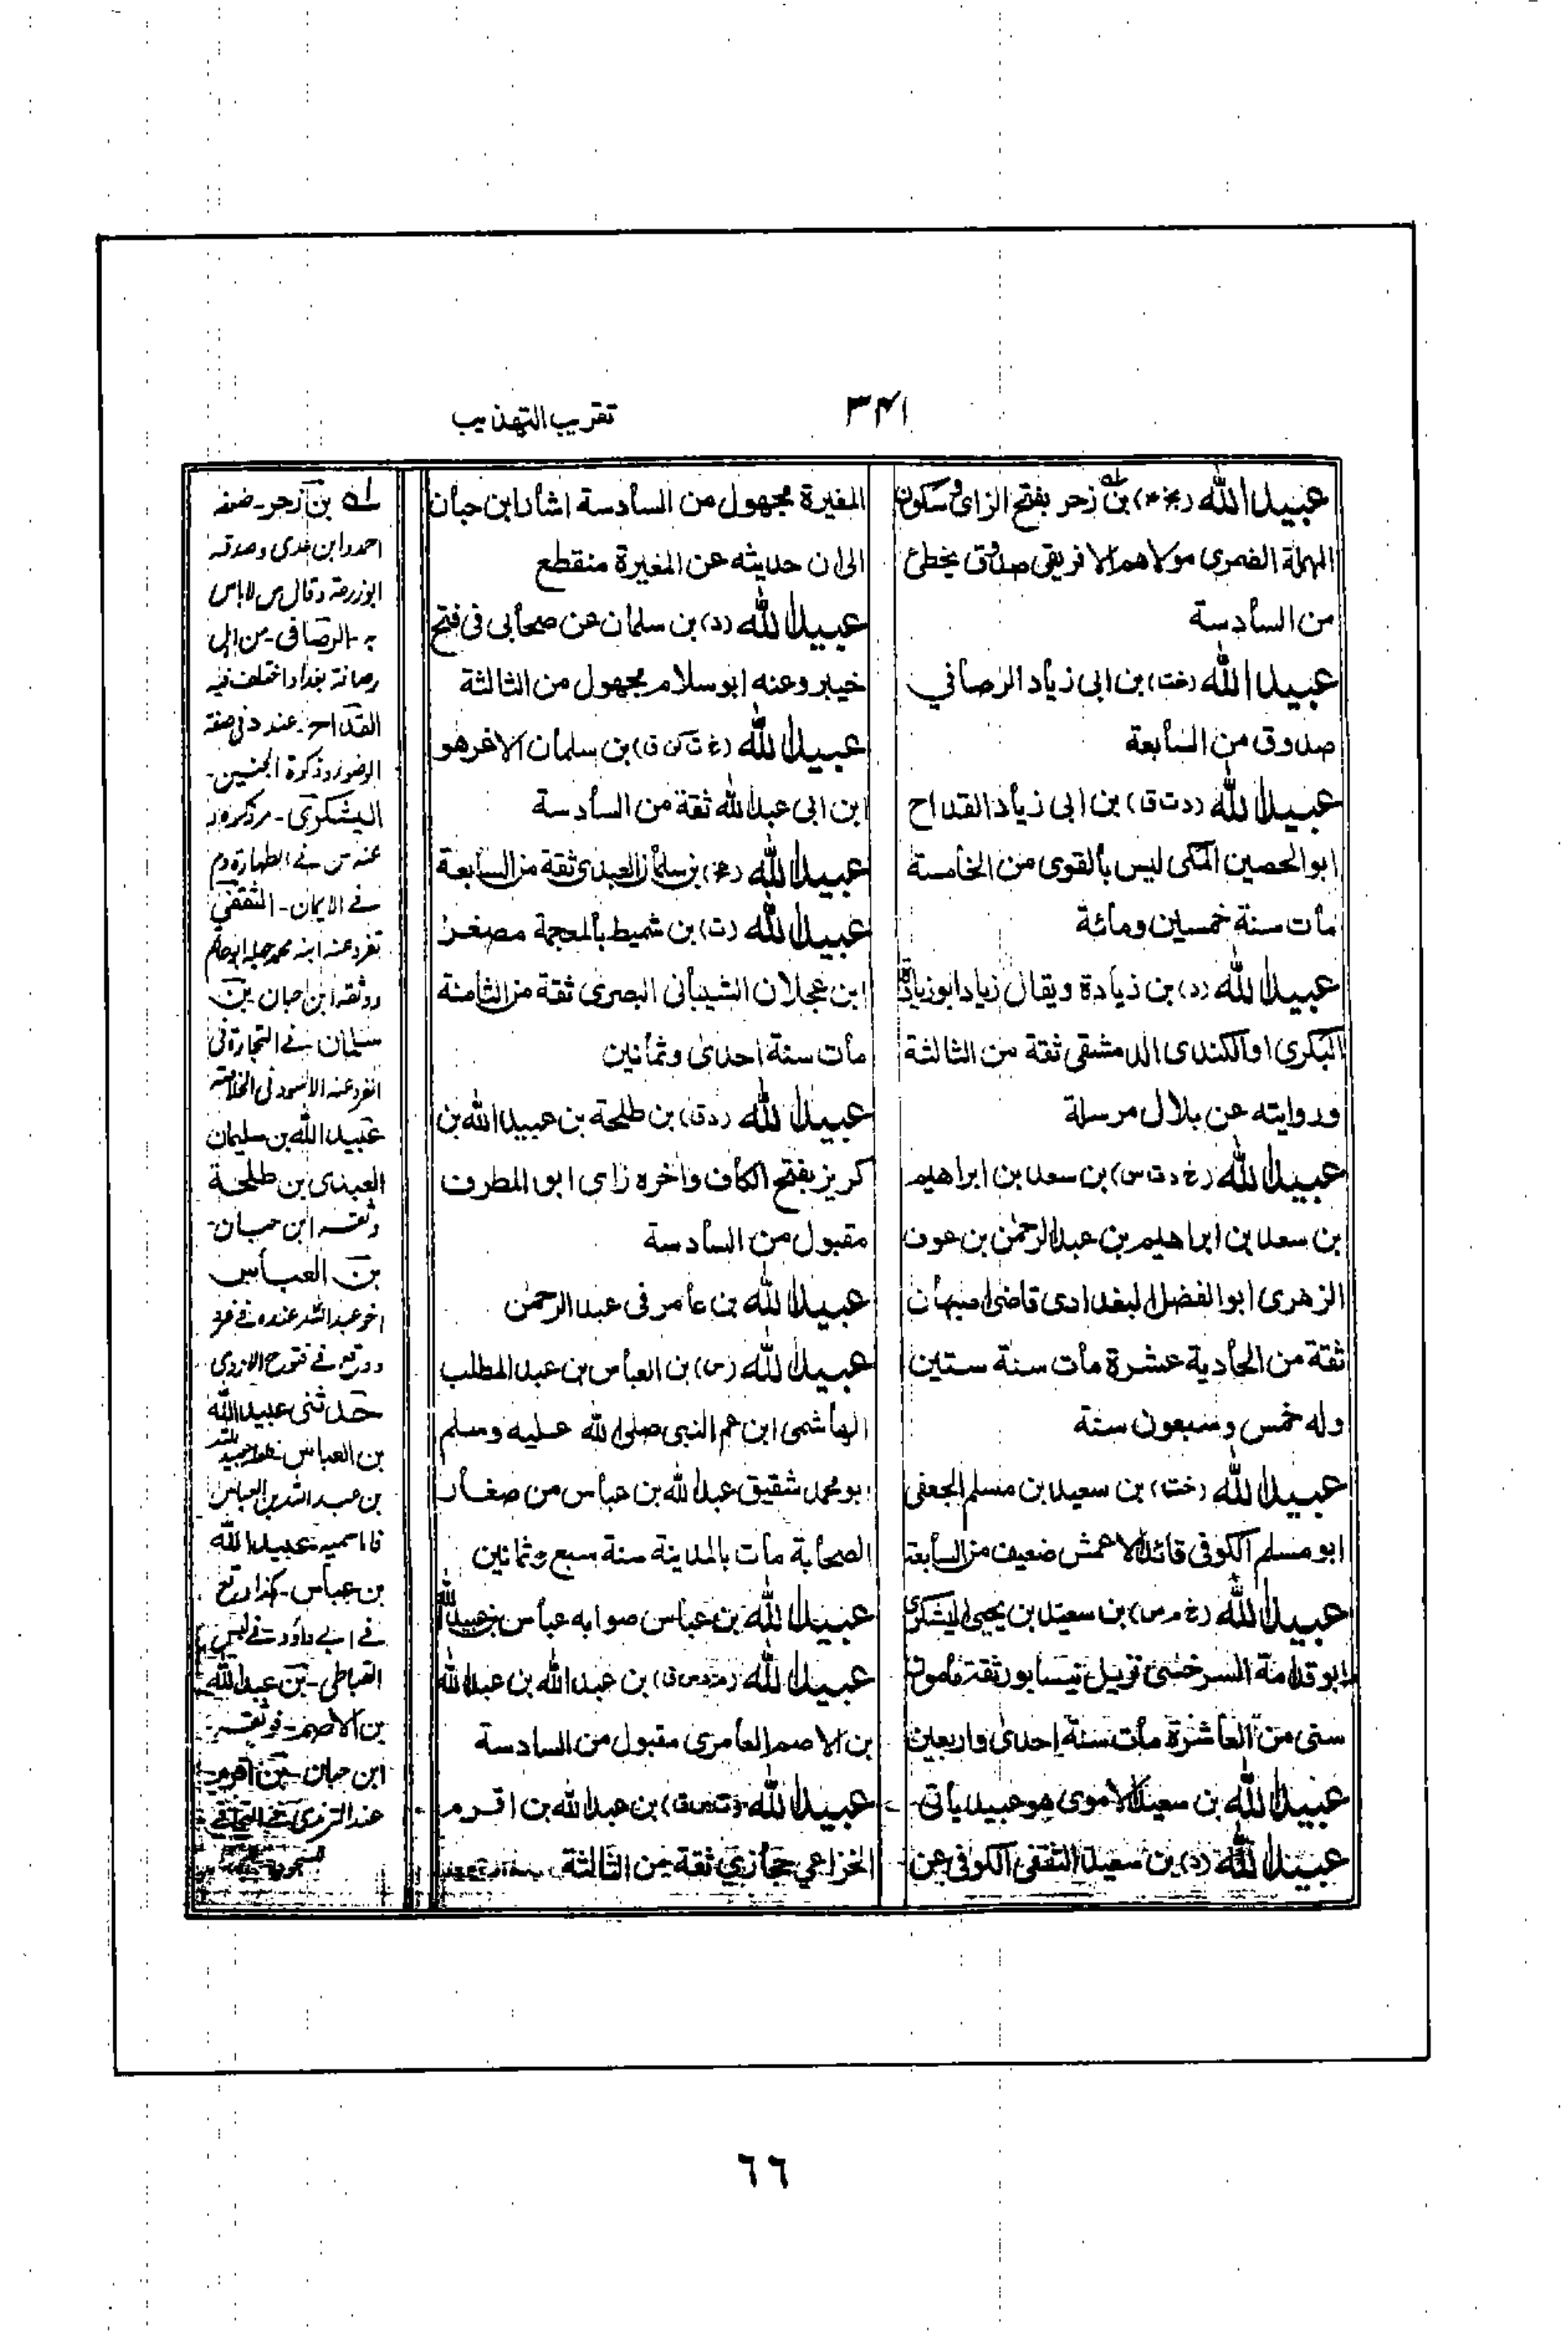 ٣٤١
تقريب التهذيب
عبيد الله (بخ ٤) بن زحر بفتح الزاى وسكون
المهملة الضمرى مولاهم الافريقى صدوق يخطئ
من السادسة
عبيد الله (خت) بن ابى زياد الرصافي
صدوق من السابعة
عبيد الله (د ت ق) بن ابى زياد القداح
ابو الحصين المكى ليس بالقوى من الخامسة
مات سنة خمسين ومائة
عبيد الله (د) بن زيادة ويقال زياد ابو زيادة
البكرى او الكندى الدمشقى ثقة من الثالثة
وروايته عن بلال مرسلة
عبيد الله (خ د ت س) بن سعد بن ابراهيم
بن سعد بن ابراهيم بن عبد الرحمٰن بن عوف
الزهرى ابو الفضل البغدادى قاضى اصبهان
ثقة من الحادية عشرة مات سنة ستين
وله خمس وسبعون سنة
عبيد الله (خت) بن سعيد بن مسلم الجعفى
ابو مسلم الكوفى قائد الاعمش ضعيف من السابعة
عبيد الله (خ م س) بن سعيد بن يحيى اليشكرى
ابو قدامة السرخسى نزيل نيسابور ثقة مامون
سنى من العاشرة مات سنة احدى واربعين
عبيد الله بن سعيد الاموى هو عبيد ياتى
عبيد الله (د) بن سعيد الثقفى الكوفى عن
المغيرة مجهول من السادسة اشار ابن حبان
الى ان حديثه عن المغيرة منقطع
عبيد الله (د) بن سلمان عن صحابى فى فتح
خيبر وعنه ابو سلام مجهول من الثالثة
عبيد الله بن سلمان الاغر هو
ابن ابى عبد الله ثقة من السادسة
عبيد الله بن سلمان العبدى ثقة من السابعة
عبيد الله (ت) بن شميط بالمعجمة مصغرا
ابن عجلان الشيبانى البصرى ثقة من الثامنة
مات سنة احدى وثمانين
عبيد الله (د ق) بن طلحة بن عبيد الله بن
كريز بفتح الكاف واخره زاى ابو المطرف
مقبول من السادسة
عبيد الله بن عامر فى عبد الرحمٰن
عبيد الله (س) بن العباس بن عبد المطلب
الهاشمى ابن عم النبى صلى الله عليه وسلم
ابو محمد شقيق عبد الله بن عباس من صغار
الصحابة مات بالمدينة سنة سبع وثمانين
عبيد الله بن عباس صوابه عباس بن عبيد الله
عبيد الله بن عبد الله بن عبد الله
بن الاصم العامرى مقبول من السادسة
عبيد الله (ت س ق) بن عبد الله بن اقرم
الخزاعي حجازي ثقة من الثالثة
له بن زحر - ضعفه
احمد وابن مدى وصدقه
ابوزرعة وقال س لاباس
به - الرصافى - من الى
رصافة بغداد اختلف فيه
القداح - عند د فى صفة
الوضوء وذكوة الجنين -
اليشكرى -
عنه س فے الطهارة و م
فے الايمان - الثقفى
تفرد عنه ابنه محمد
ووثقه ابن حبان بن
سلمان فے التجارة فى
انفرد عنه الاسود فى الخلاصة
عبيد الله بن سليمان
العبدى بن طلحة
وثقه ابن حبان -
بن العباس
اخو عبد الله عنده فے
ووقع فے فتوح الازدى
حدثنى عبيد الله
بن العباس
بن عبد الله بن العباس
عبيد الله
بن عباس - كذا وقع
فے ابى داؤد فے لبس
القباطى - بن عبد الله
بن الاصم - وثقه
ابن حبان - بن اقرم
عند الترمذى فے التجافى
السجود
٦٦